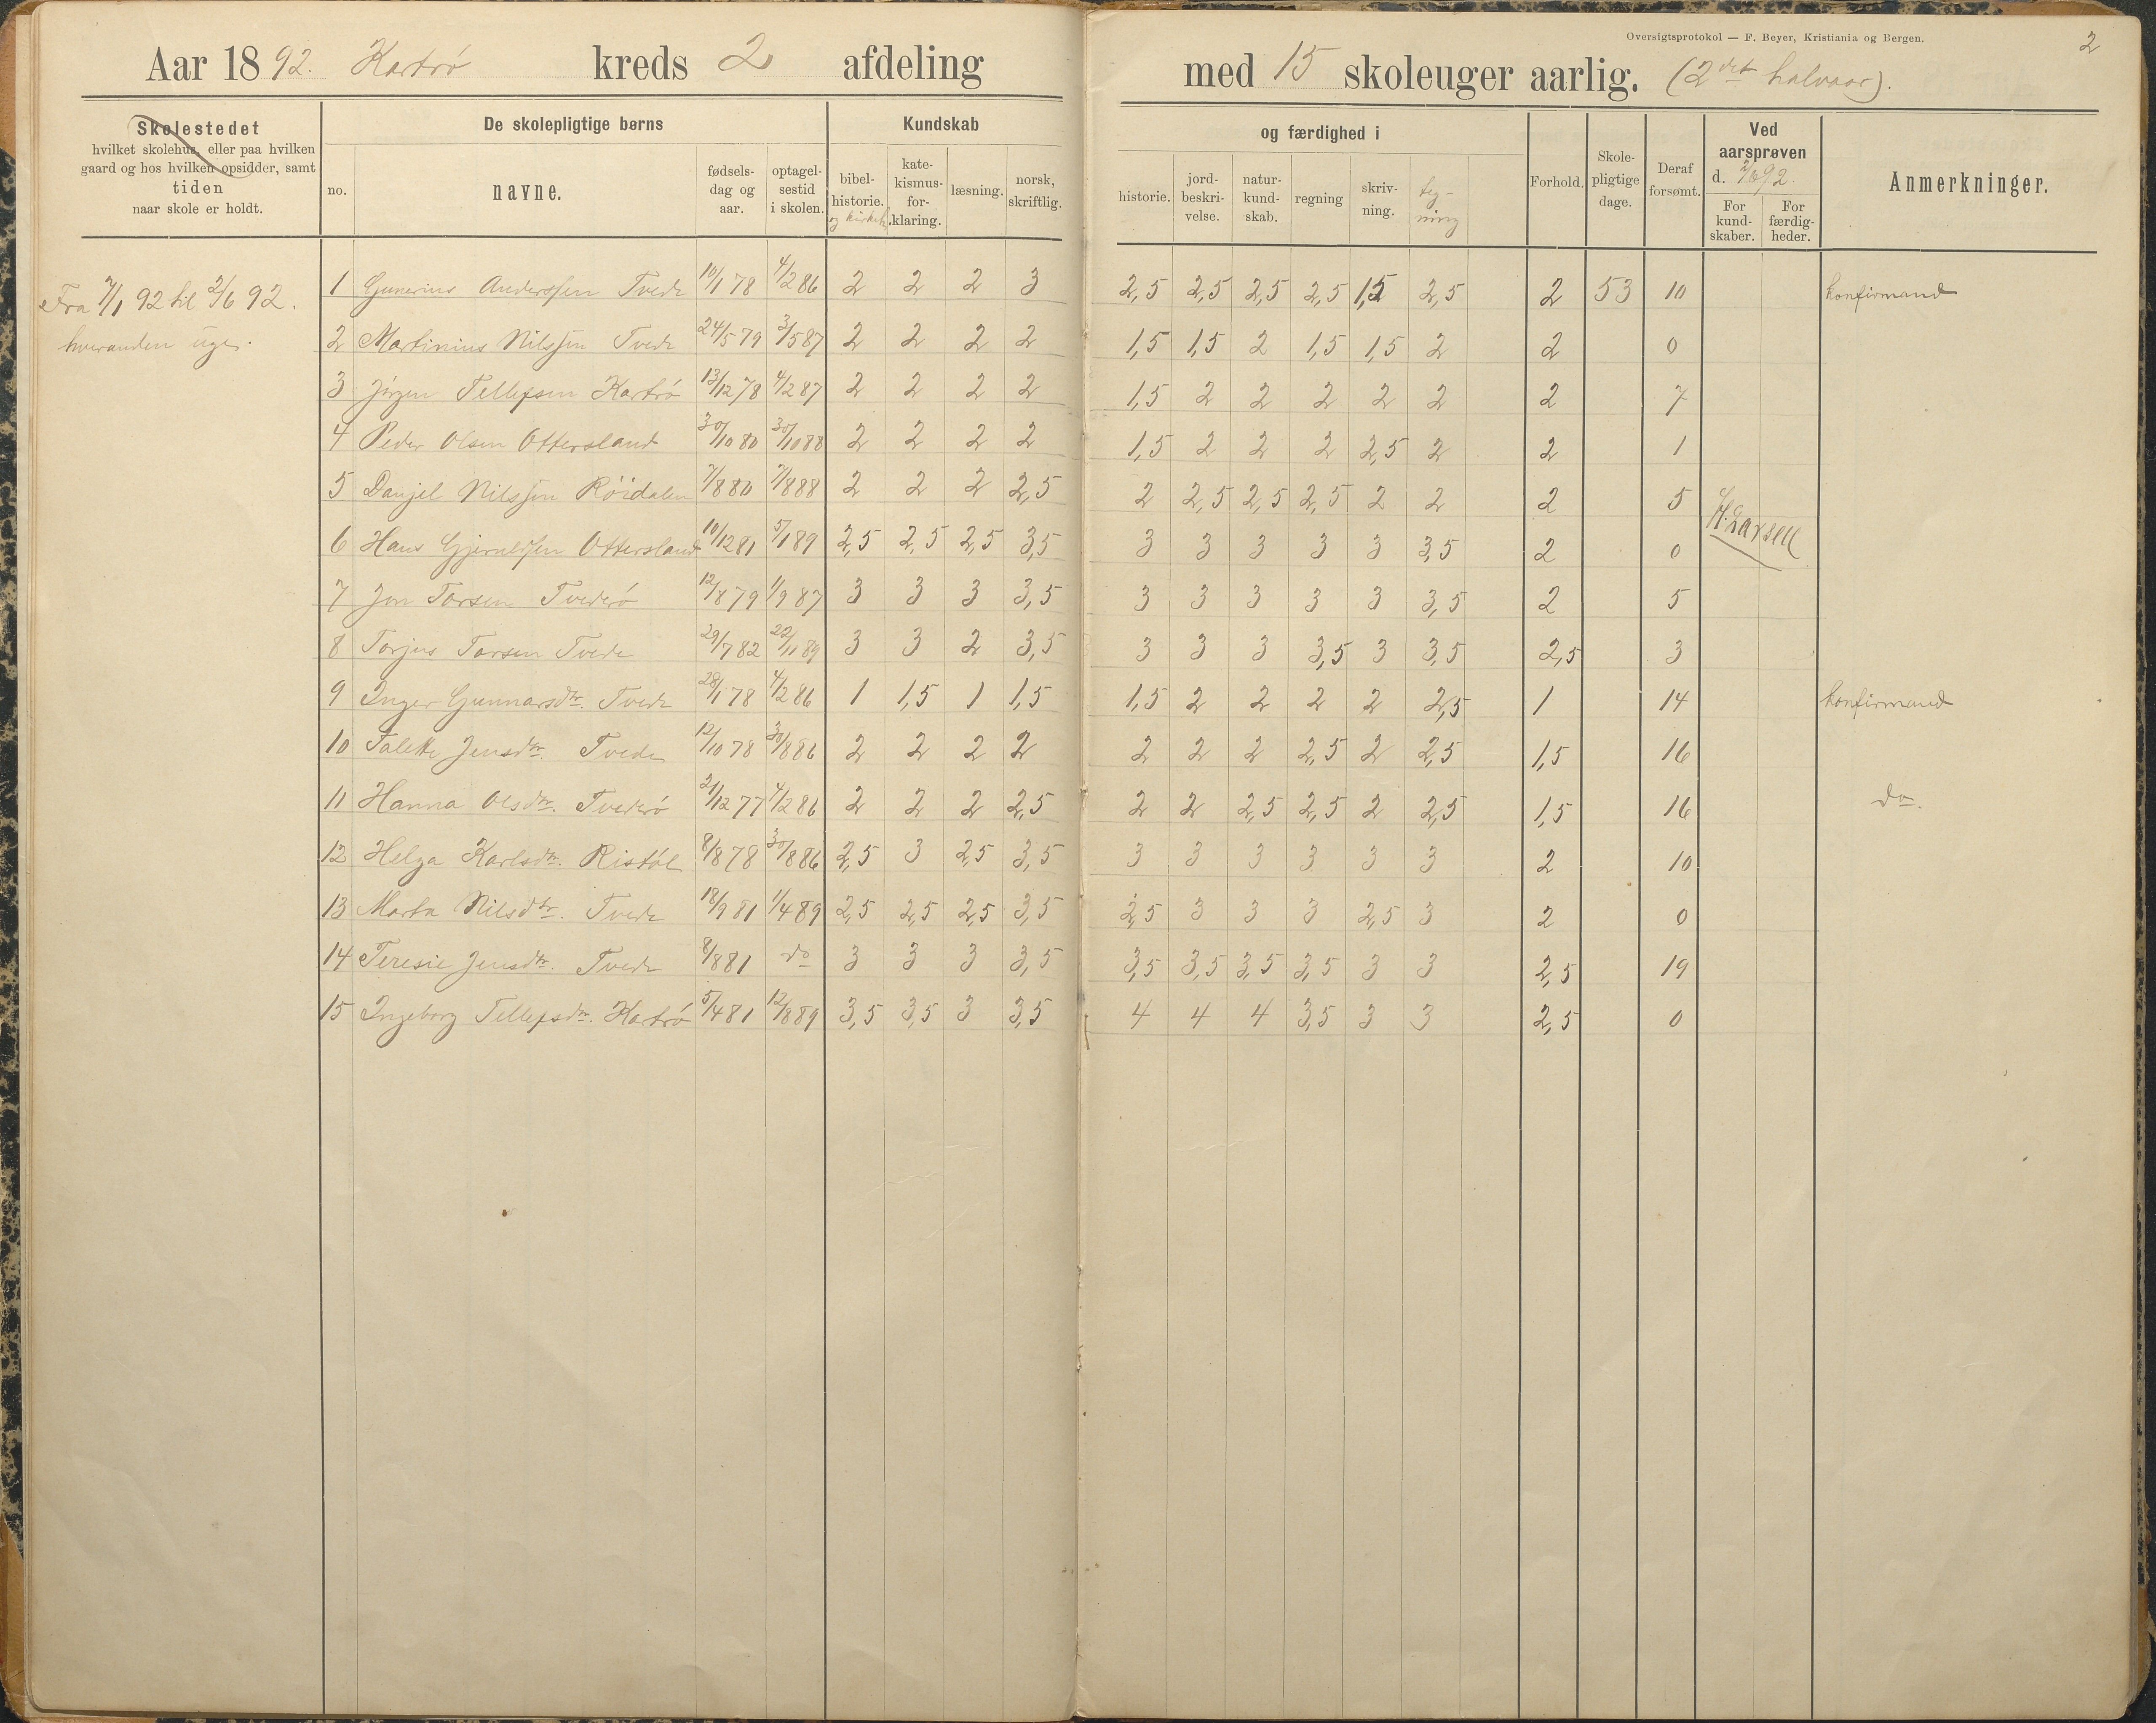 Oversigtsprotokol — F. Beyer, Kristiania og Bergen.
2
Aar 1892. Kartrø kreds 2 afdeling med 15 skoleuger aarlig. (2det halvaar).
Skolestedet
hvilket skolehus, eller paa hvilken
gaard og hos hvilken opsidder, samt
tiden
naar skole er holdt.
De skolepligtige børns
no.
navne.
fødsels-
dag og
aar.
optagel-
sestid
i skolen.
Kundskab
bibel-
historie.
og kirkeh.
kate-
kismus-
for-
klaring.
læsning.
norsk,
skriftlig.
og færdighed i
historie.
jord-
beskri-
velse.
natur-
kund-
skab.
regning
skriv-
ning.
teg-
ning
Forhold.
Skole-
pligtige
dage.
Deraf
forsømt.
Ved
aarsprøven
d. 2/6 92.
For
kund-
skaber.
For
færdig-
heder.
Anmerkninger.
Fra 7/1 92 til 2/6 92.
hveranden uge.
1 Gunerius Anderssen Tvede 10/1 78 4/2 86 2 2 2 3 2,5 2,5 2,5 2,5 1,5 2,5 2 53 10 konfirmand
2 Martinius Nilssen Tvede 24/5 79 3/5 87 2 2 2 2 1,5 1,5 2 1,5 1,5 2 2 0
3 Jörgen Tellefsen Kartrö 13/12 78 4/2 87 2 2 2 2 1,5 2 2 2 2 2 2 7
4 Peder Olsen Ottersland 30/10 80 30/10 88 2 2 2 2 1,5 2 2 2 2,5 2 2 1
5 Danjel Nilssen Röidalen 7/8 80 7/8 88 2 2 2 2,5 2 2,5 2,5 2,5 2 2 2 5
H. Larsen
6 Hans Gjeruldsen Ottersland 10/12 81 5/1 89 2,5 2,5 2,5 3,5 3 3 3 3 3 3,5 2 0
7 Jon Torsen Tvederö 12/8 79 1/9 87 3 3 3 3,5 3 3 3 3 3 3,5 2 5
8 Torjus Torsen Tvede 29/7 82 22/11 89 3 3 2 3,5 3 3 3 3,5 3 3,5 2,5 3
9 Inger Gunnarsdtr. Tvede 28/1 78 4/2 86 1 1,5 1 1,5 1,5 2 2 2 2 2,5 1 14 konfirmand
10 Talette Jensdtr. Tvede 12/10 78 30/8 86 2 2 2 2 2 2 2 2,5 2 2,5 1,5 16
11 Hanna Olsdtr. Tvederö 21/12 77 4/2 86 2 2 2 2,5 2 2 2,5 2,5 2 2,5 1,5 16 do.
12 Helga Karlsdtr. Ristöl 8/8 78 30/8 86 2,5 3 2,5 3,5 3 3 3 3 3 3 2 10
13 Marta Nilsdtr. Tvede 18/9 81 1/4 89 2,5 2,5 2,5 3,5 2,5 3 3 3 2,5 3 2 0
14 Teresie Jensdtr. Tvede 8/8 81 do 3 3 3 3,5 3,5 3,5 3,5 3,5 3 3 2,5 19
15 Ingeborg Tellefsdtr. Kartrö 5/4 81 12/8 89 3,5 3,5 3 3,5 4 4 4 3,5 3 3 2,5 0